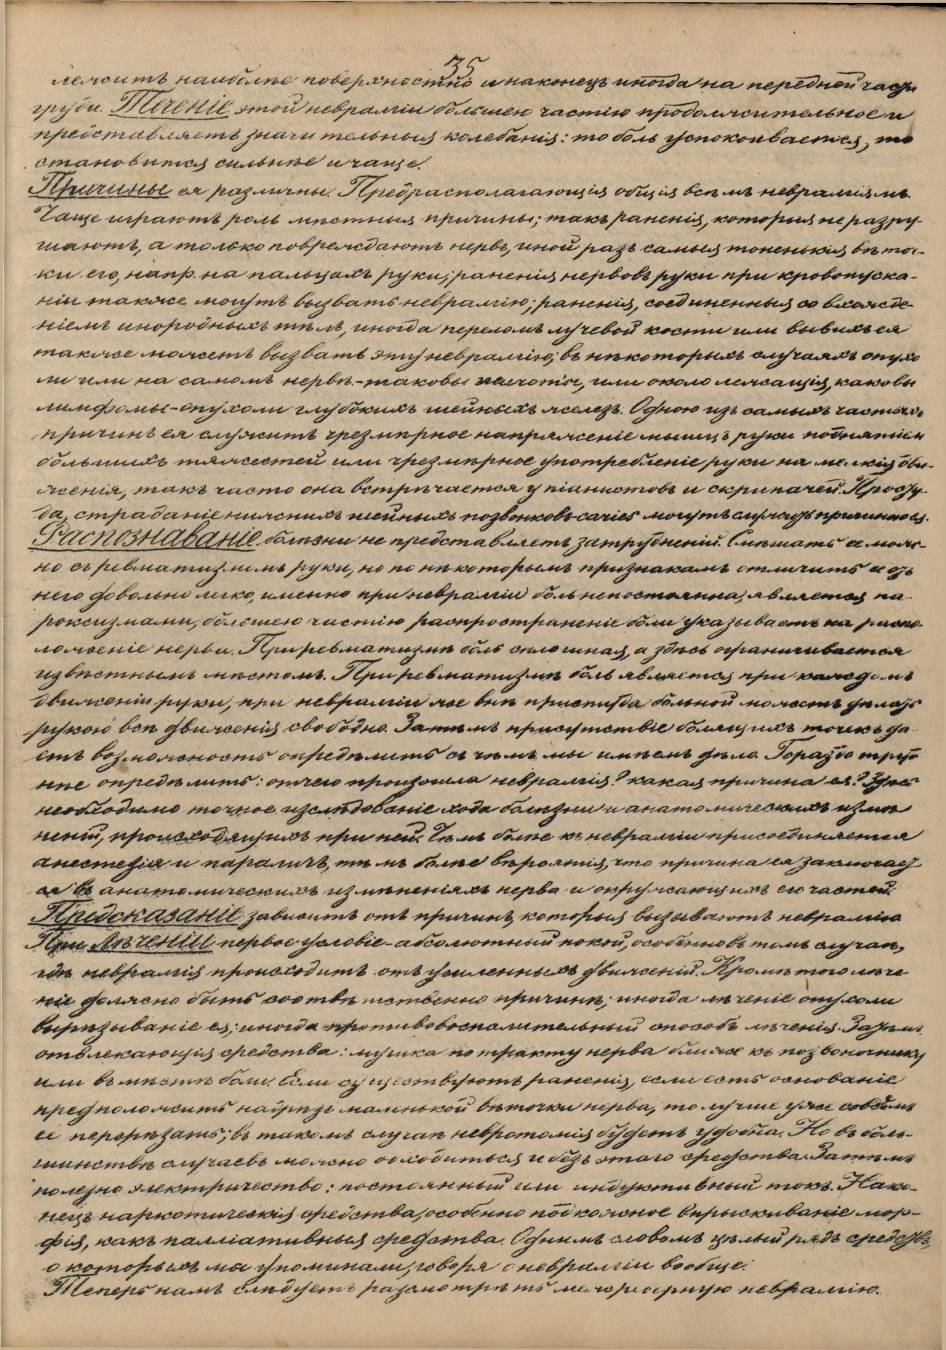 35
лежитъ наиболѣе поверхностно и наконецъ иногда на передней части
груди. Теченіе этой невралгіи большею частію продолжительное и
представляетъ значительныя колебанія: то боль успокоивается, то
становится сильнѣе и чаще.
Причины ея различны. Предрасполагающія общія всѣмъ невралгіямъ.
Чаще играютъ роль мѣстныя причины; такъ раненія, которыя не разру-
шаютъ, а только повреждаютъ нервъ, иной разъ самыя тоненькія вѣточ-
ки его, напр. на пальцахъ руки; раненія нервовъ руки при кровопуска-
ніи также могутъ вызвать невралгію; раненія, соединенныя со вхожде-
ніемъ инородныхъ тѣлъ, иногда переломъ лучевой кости или вывихъ ея
также можетъ вызвать эту невралгію; въ нѣкоторыхъ случаяхъ опухо
ли или на самомъ нервѣ-таковы, или около лежащія, каковы
лимфомы-опухоли глубокихъ шейныхъ железъ. Одною изъ самыхъ частыхъ
причинъ ея служитъ чрезмѣрное напряженіе мышцъ руки поднятіем
большихъ тяжестей или чрезмѣрное употребленіе руки на мелкія дви-
женія, такъ часто она встрѣчается у піанистовъ и скрипачей. Просту-
да, страданіе нижнихъ шейныхъ позвонковъ caries могутъ служить причиною ея.
Распознаваніе болѣзни не представляетъ затрудненій. Смѣшать ее мож-
но съ ревматизмомъ руки, но по нѣкоторымъ признакамъ отличить ее отъ
него довольно легко, именно при невралгіи боль непостоянна, является па-
роксизмами, большею частію распространеніе боли указываетъ на распо
ложеніе нерва. При ревматизмѣ боль сплошная, а здѣсь ограничивается
извѣстнымъ мѣстомъ. При ревматизмѣ боль является при каждомъ
движеніи руки, при невралгіи же внѣ приступа больной можетъ дѣлать
рукою всѣ движенія свободно. Затѣмъ присутствіе болящихъ точекъ да-
етъ возможность опредѣлить съ чѣмъ мы имѣемъ дѣло. Гораздо труд
нѣе опредѣлить: отчего произошла невралгія? какая причина ея? Здѣсь
необходимо точное изслѣдованіе хода болѣзни и анатомическихъ измѣ
неній, происходящихъ при ней. Чѣмъ болѣе къ невралгіи присоединяется
анестезія и параличъ, тѣмъ болѣе вѣроятія, что причина ея заключает
ся въ анатомическихъ измѣненіяхъ нерва и окружающихъ его частей.
Предсказаніе зависитъ отъ причинъ, которыя вызываютъ невралгію
При лѣченіи первое условіе-абсолютный покой, особенно въ томъ случаѣ,
гдѣ невралгія происходитъ отъ усиленныхъ движеній. Кромѣ того лѣче
ніе должно быть соотвѣтственно причинѣ; иногда лѣченіе опухоли
вырѣзываніе ея; иногда противовоспалительный способъ лѣченія. Затѣмъ
отвлекающія средства: мушка по тракту нерва ближе къ позвоночнику
или въ мѣстѣ боли. Если существуютъ раненія, если есть основаніе
предположить надрѣзъ маленькой вѣточки нерва, то лучше уже совсѣмъ
ее перерѣзать; въ такомъ случаѣ невротомія будетъ удобна. Но въ боль-
шинствѣ случаевъ можно обходиться и безъ этого средства. Затѣмъ
полезно электричество: постоянный или индуктивный токъ. Нако-
нецъ наркотическія средства, особенно подкожное впрыскиваніе мор-
фія, какъ палліативныя средства. Однимъ словомъ цѣлый рядъ средствъ,
о которыхъ мы упоминали, говоря о невралгіи вообще.
Теперь намъ слѣдуетъ разсмотрѣть межреберную невралгію.